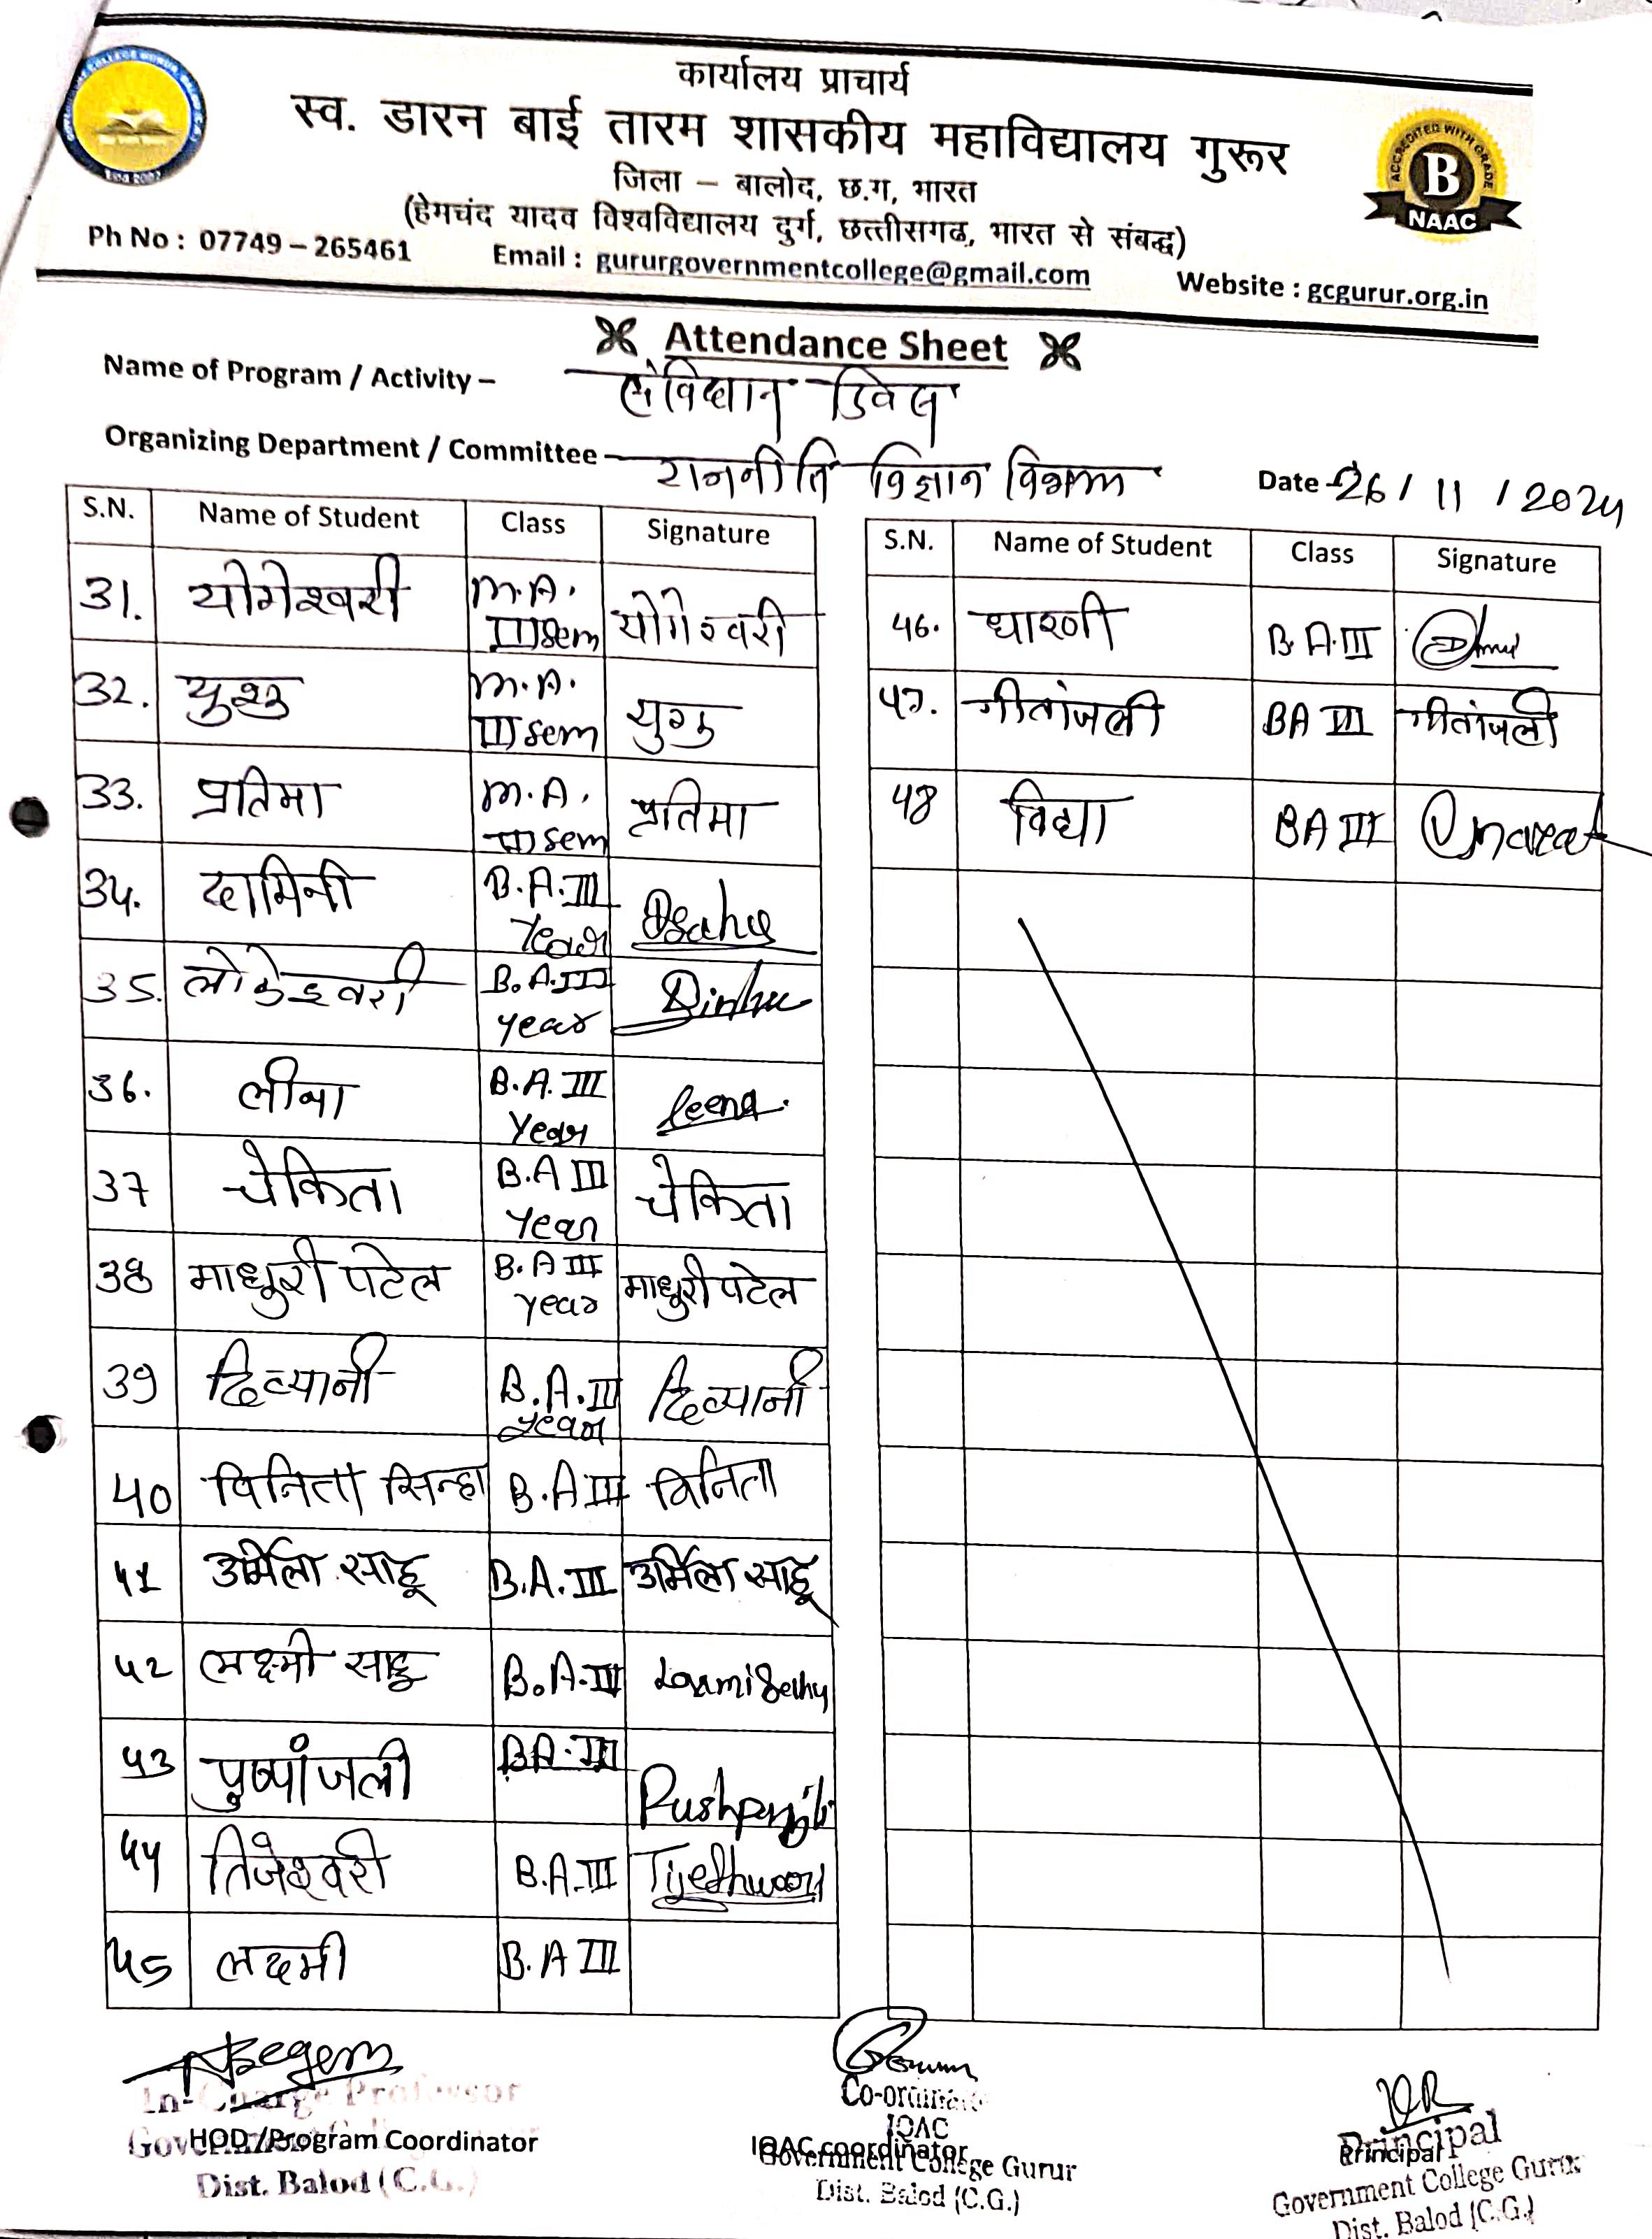 कार्यालय प्राचार्य
स्व. डारन बाई तारम शासकीय महाविद्यालय गुरूर
जिला – बालोद, छ.ग, भारत
(हेमचंद यादव विश्वविद्यालय दुर्ग, छत्तीसगढ, भारत से संबद्ध)
Ph No : 07749 – 265461 Email : gururgovernmentcollege@gmail.com Website : gcgurur.org.in
ACCREDITED WITH GRADE
B
NAAC
Attendance Sheet
Name of Program / Activity – संविधान दिवस
Organizing Department / Committee – राजनीति विज्ञान विभाग Date - 26 / 11 / 2024
S.N. Name of Student Class Signature
31. योगेश्वरी M.A. III sem योगेश्वरी
32. M.A. III sem
33. प्रतिमा M.A. III sem प्रतिमा
34. दामिनी B.A. III Year Dsahu
35. लोकेश्वरी B.A. III year
36. लीना B.A. III Year Leena
37 चेकिता B.A III Year चेकिता
38 माधुरी पटेल B.A III year माधुरी पटेल
39 दिव्यानी B.A. III year दिव्यानी
40 विनिता सिन्हा B.A III विनिता
41 उर्मिला साहू B.A. III उर्मिला साहू
42 लक्ष्मी साहू B.A. III Laxmi Sahu
43 पुष्पांजली BA. III Pushpanjali
44 तिजेश्वरी B.A. III Tijeshwari
45 लक्ष्मी B.A III
S.N. Name of Student Class Signature
46. B.A. III
47. गीतांजली BA III गीतांजली
48 विद्या BA III
In-Charge Professor
HOD /Program Coordinator
Dist. Balod (C.G.)
Co-ordinator
IQAC
IQAC coordinator
Government College Gurur
Dist. Balod (C.G.)
Principal
Principal
Government College Gurur
Dist. Balod (C.G.)